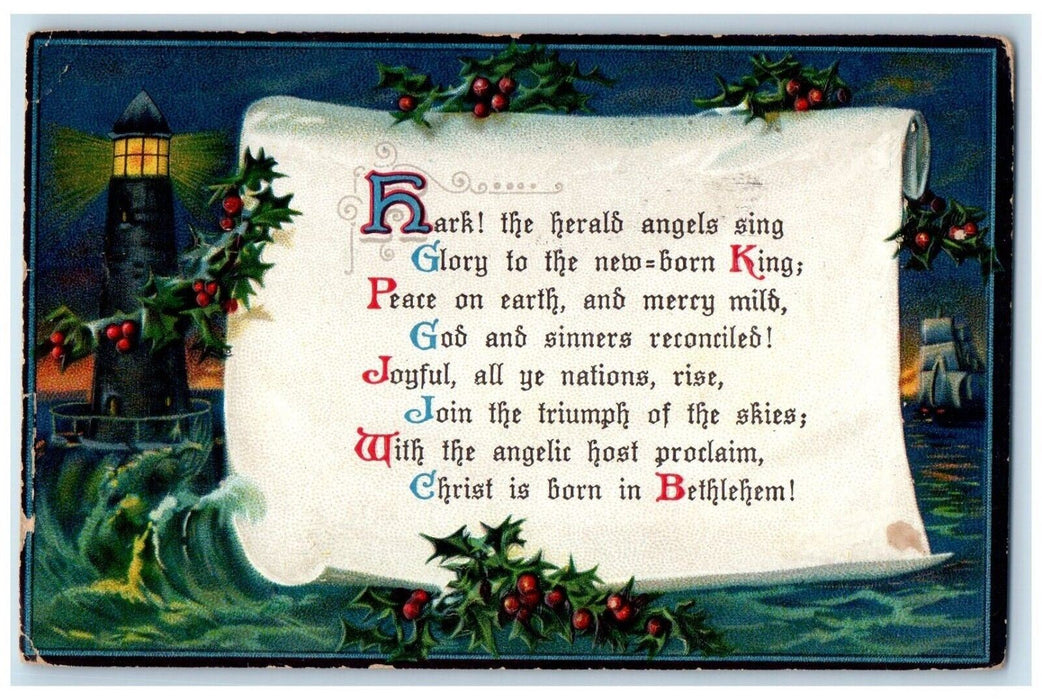 Hark! the herald angels sing
Glory to the new=born King;
Peace on earth, and mercy mild,
God and sinners reconciled!
Joyful, all ye nations, rise,
Join the triumph of the skies;
With the angelic host proclaim,
Christ is born in Bethlehem!